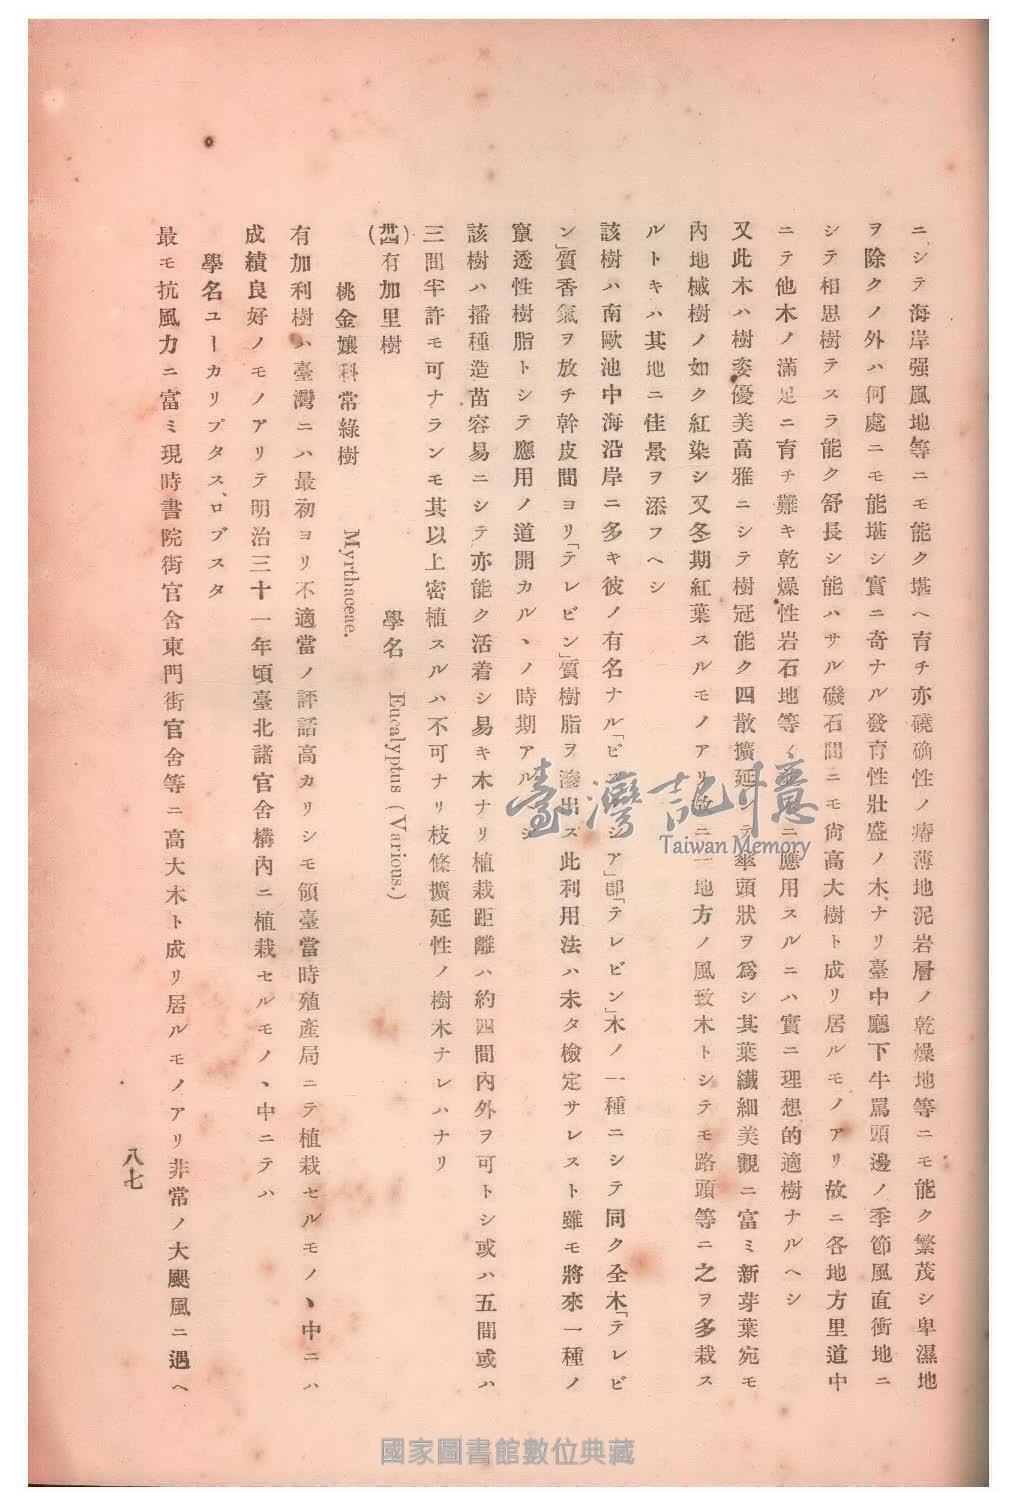 ニシテ海岸强風地等ニモ能ク堪ヘ育チ亦磽确性ノ瘠薄地泥岩層ノ乾燥地等ニモ能ク繁茂シ卑濕地
ヲ除クノ外ハ何處ニモ能堪シ實ニ奇ナル發育性壯盛ノ木ナリ臺中廳下牛罵頭邊ノ季節風直衝地ニ
シテ相思樹テスラ能ク舒長シ能ハサル磯石間ニモ尙高大樹ト成リ居ルモノアリ故ニ各地方里道中
ニテ他木ノ滿足ニ育チ難キ乾燥性岩石地等ノ ニ應用スルニハ實ニ理想的適樹ナルヘシ
又此木ハ樹姿優美高雅ニシテ樹冠能ク四散擴延シテ傘頭狀ヲ爲シ其葉纖細美觀ニ富ミ新芽葉宛モ
內地槭樹ノ如ク紅染シ又冬期紅葉スルモノアリ故ニ一地方ノ風致木トシテモ路頭等ニ之ヲ多栽ス
ルトキハ其地ニ佳景ヲ添フヘシ
該樹ハ南歐池中海沿岸ニ多キ彼ノ有名ナル「ピスタシア」卽「テレビン」木ノ一種ニシテ同ク全木「テレビ
ン」質香氣ヲ放チ幹皮間ヨリ「テレビン」質樹脂ヲ滲出ス此利用法ハ未タ檢定サレスト雖モ將來一種ノ
竄透性樹脂トシテ應用ノ道開カル丶ノ時期アルヘシ
該樹ハ播種造苗容易ニシテ亦能ク活着シ易キ木ナリ植栽距離ハ約四間內外ヲ可トシ或ハ五間或ハ
三間半許モ可ナランモ其以上密植スルハ不可ナリ枝條擴延性ノ樹木ナレハナリ
(卌四)有加里樹 學名 Eucalyptus (Various.)
桃金孃科常綠樹 Myrthaceae.
有加利樹ハ臺灣ニハ最初ヨリ不適當ノ評話高カリシモ領臺當時殖產局ニテ植栽セルモノ丶中ニハ
成績良好ノモノアリテ明治三十一年頃臺北諸官舍構內ニ植栽セルモノ丶中ニテハ
學名ユーカリプタス、ロブスタ
最モ抗風力ニ富ミ現時書院街官舍東門街官舍等ニ高大木ト成リ居ルモノアリ非常ノ大颶風ニ遇ヘ
八七
臺灣記憶
Taiwan Memory
國家圖書館數位典藏